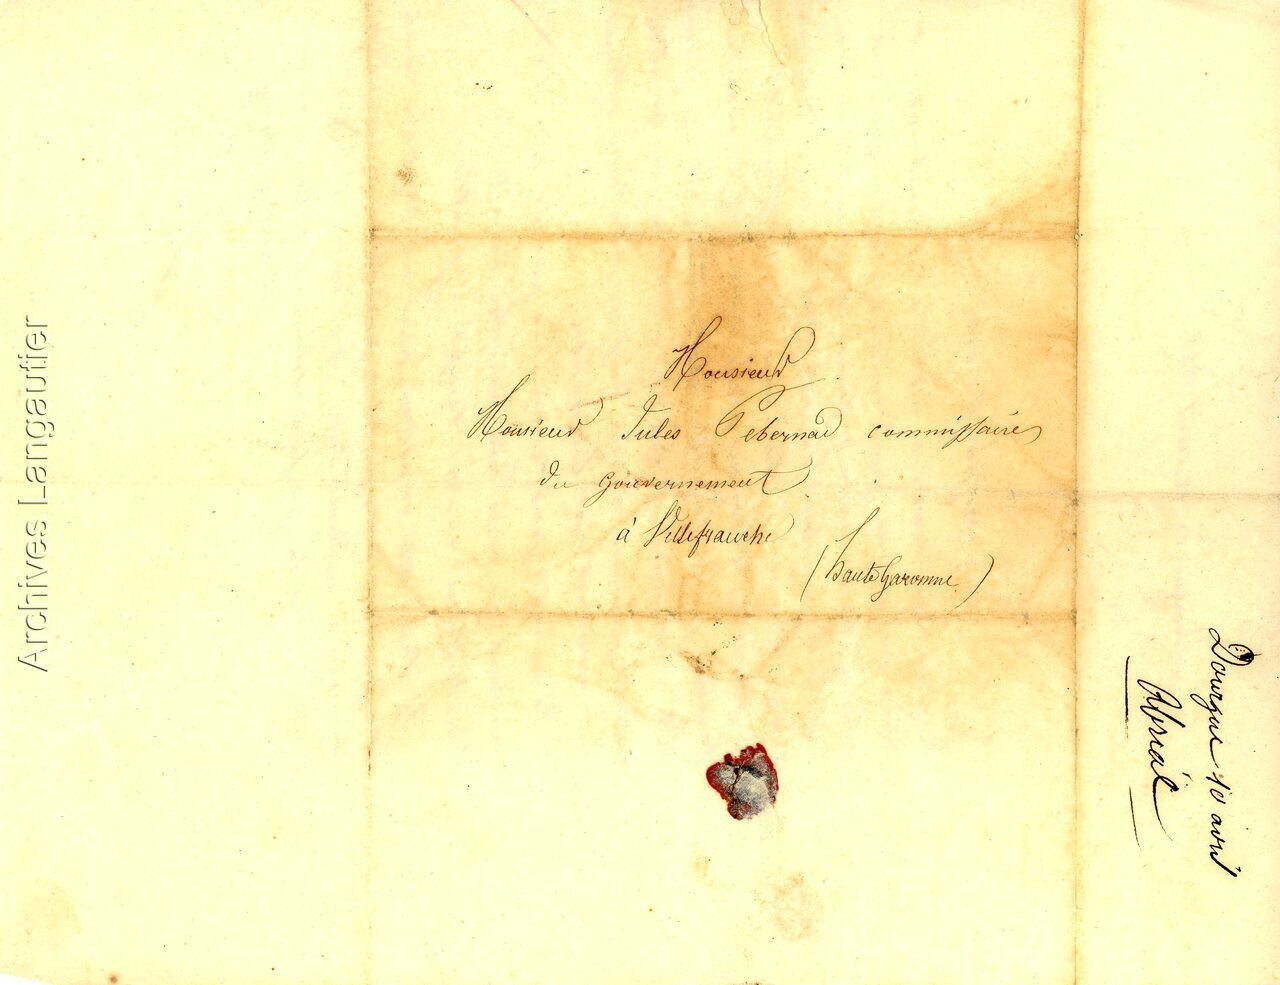 Monsieur
Monsieur Jules Pebernad commissaire
du gouvernement
à Villefranche
(haute Garonne)
Dourgne 10 avril
Abrial
Archives Langautier